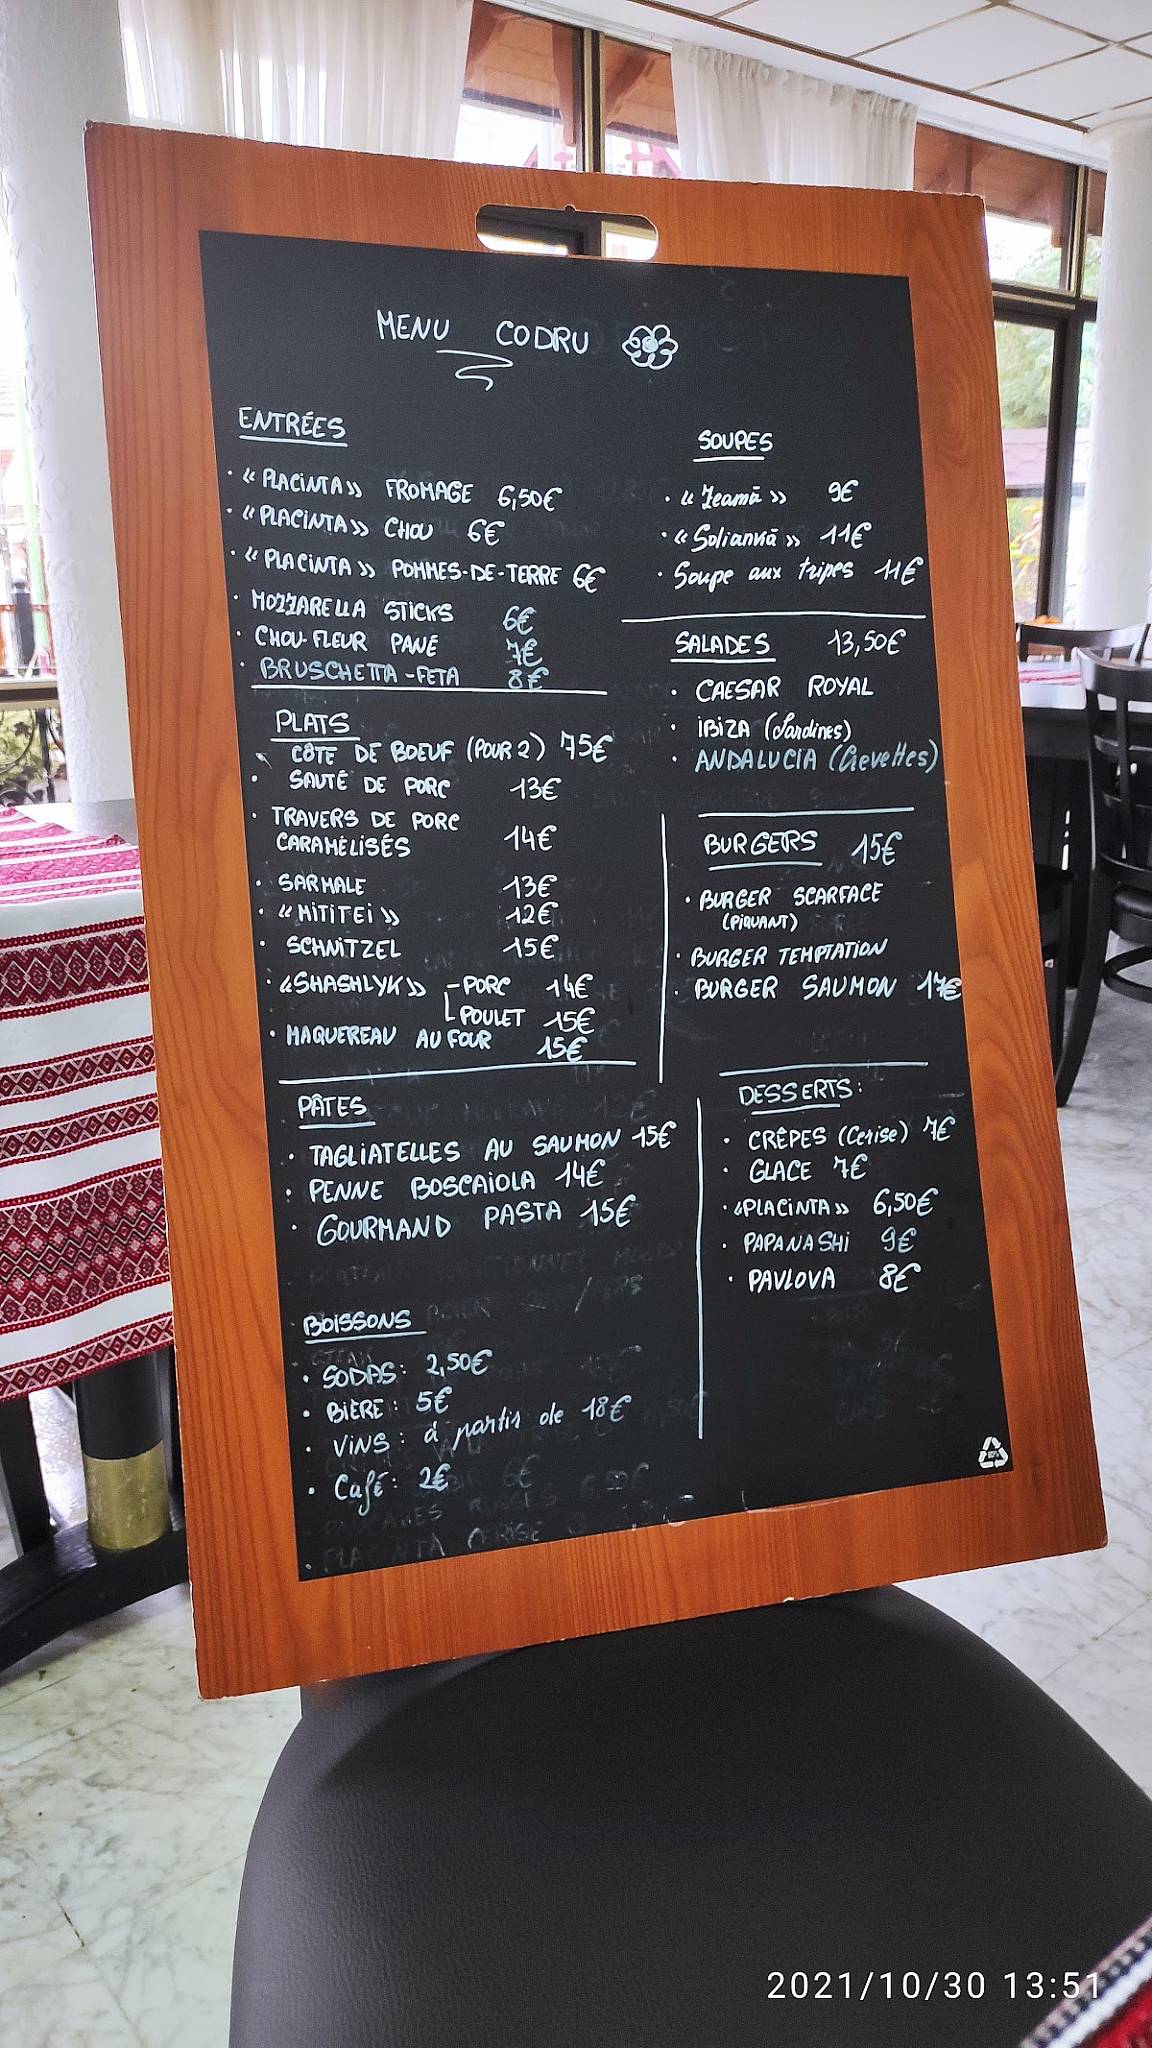 MENU CODRU
ENTRÉES
· « PLACINTA » FROMAGE 6,50€
· « PLACINTA » CHOU 6€
· « PLACINTA » POMMES-DE-TERRE 6€
· MOZZARELLA STICKS 6€
· CHOU-FLEUR PANÉ 7€
· BRUSCHETTA-FETA 8€
PLATS
· CÔTE DE BOEUF (POUR 2) 75€
· SAUTÉ DE PORC 13€
· TRAVERS DE PORC
CARAMÉLISÉS 14€
· SARMALE 13€
· « MITITEI » 12€
· SCHNITZEL 15€
· «SHASHLYK» - PORC 14€
POULET 15€
· MAQUEREAU AU FOUR 15€
PÂTES
· TAGLIATELLES AU SAUMON 15€
· PENNE BOSCAIOLA 14€
· GOURMAND PASTA 15€
BOISSONS
· SODAS: 2,50€
· BIÈRE: 5€
· VINS: à partir de 18€
· Café: 2€
PLACINTA CERISE
SOUPES
· « Zeamă » 9€
· « Soliankă » 11€
· Soupe aux tripes 11€
SALADES 13,50€
· CAESAR ROYAL
· IBIZA (Sardines)
· ANDALUCIA (Crevettes)
BURGERS 15€
· BURGER SCARFACE
(PIQUANT)
· BURGER TEMPTATION
· BURGER SAUMON 17€
DESSERTS:
· CRÊPES (Cerise) 7€
· GLACE 7€
· «PLACINTA» 6,50€
· PAPANASHI 9€
· PAVLOVA 8€
2021/10/30 13:51